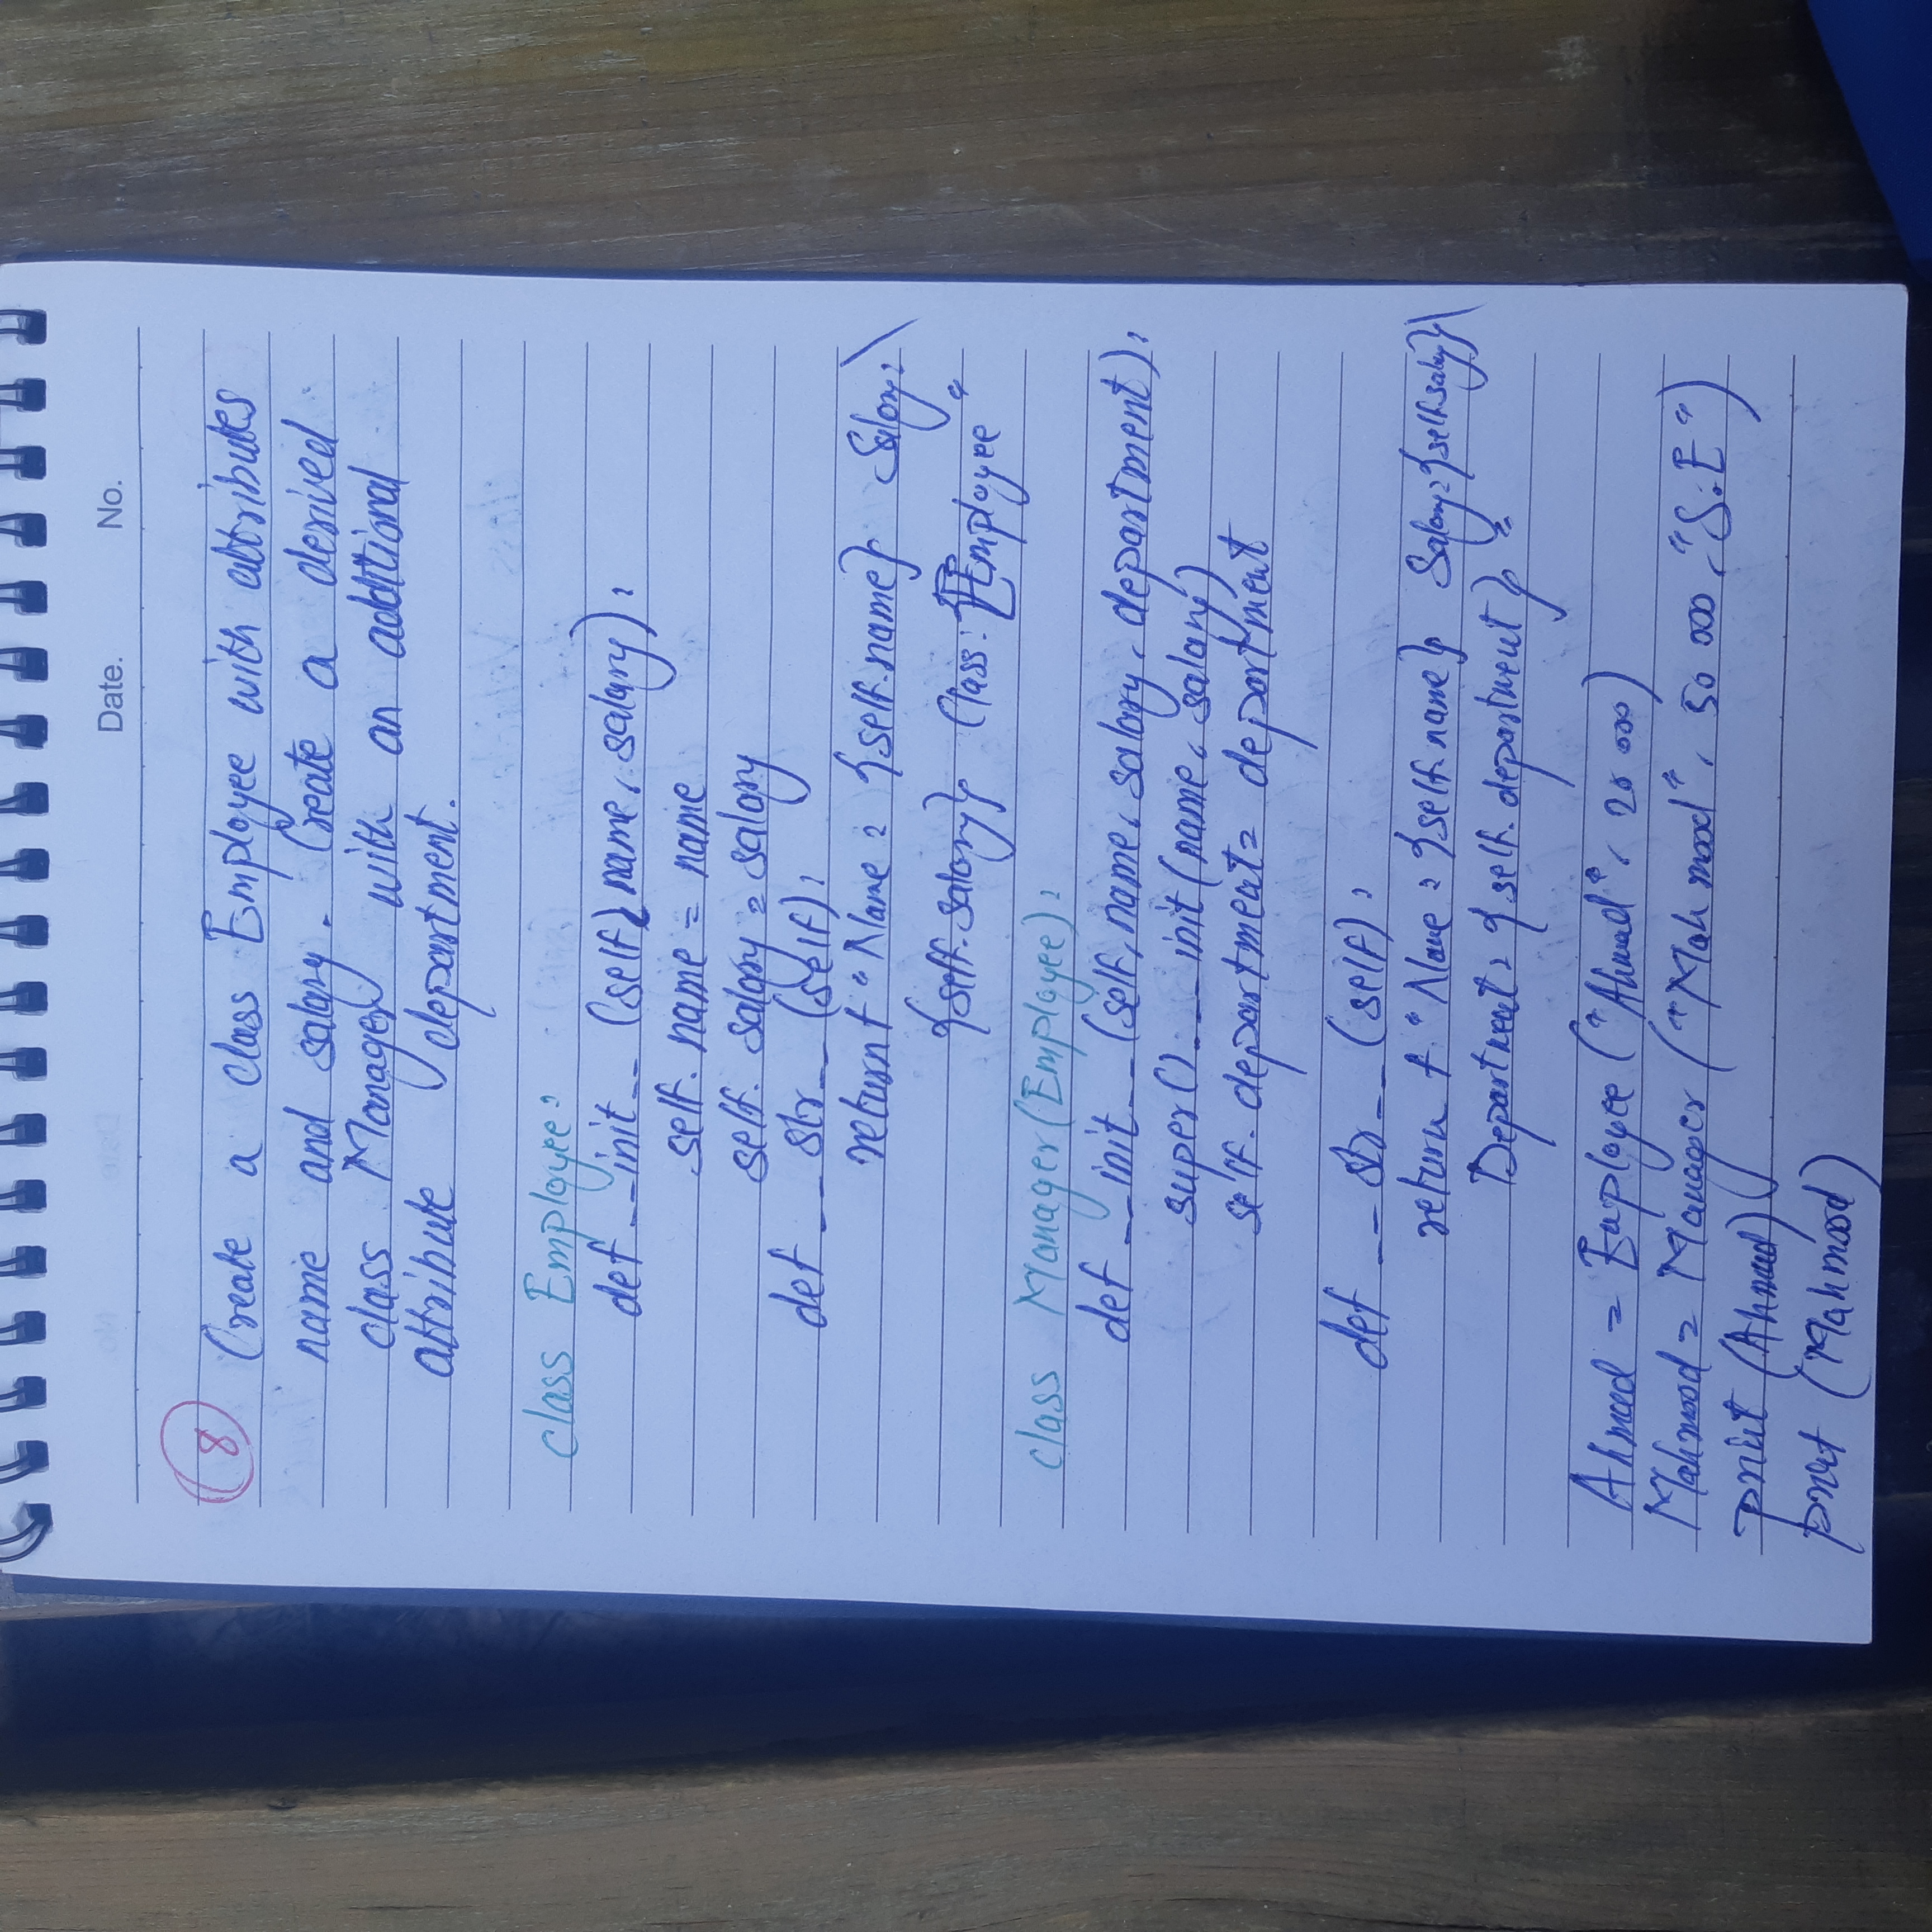 Date. No.
8 Create a class Employee with attributes
name and salary. Create a derived
class Manager with an additional
attribute department.
class Employee:
def __init__ (self, name, salary):
self.name = name
self.salary = salary
def __str__ (self):
return f"Name: {self.name} Salary: \
{self.salary} Class: Employee "
class Manager(Employee):
def __init__ (self, name, salary, department):
super().__init (name, salary)
self.department = department
def __str__ (self):
return f"Name: {self.name} Salary:{self.salary} \
Department: {self.department}"
Ahmed = Employee ("Ahmad", 20 000)
Mahmood = Manager ("Mahmood", 50 000, "S.E")
print (Ahmad)
print (Mahmood)